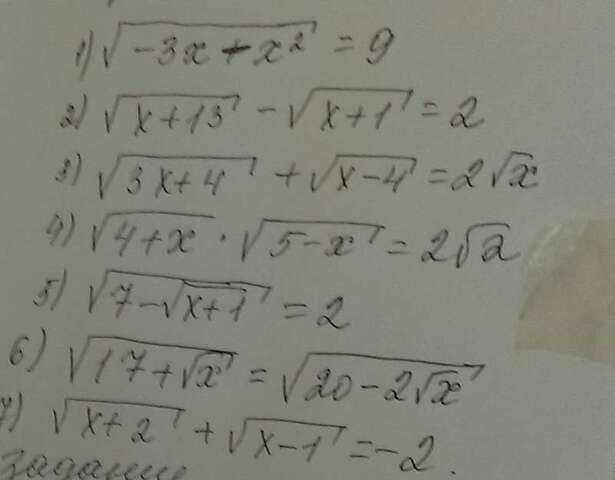 1) √(-3x - x²) = 9
2) √(x+13) - √(x+1) = 2
3) √(3x+4) + √(x-4) = 2√x
4) √(4+x) · √(5-x) = 2√2
5) √(7-√(x+1)) = 2
6) √(17+√x) = √(20-2√x)
7) √(x+2) + √(x-1) = -2.